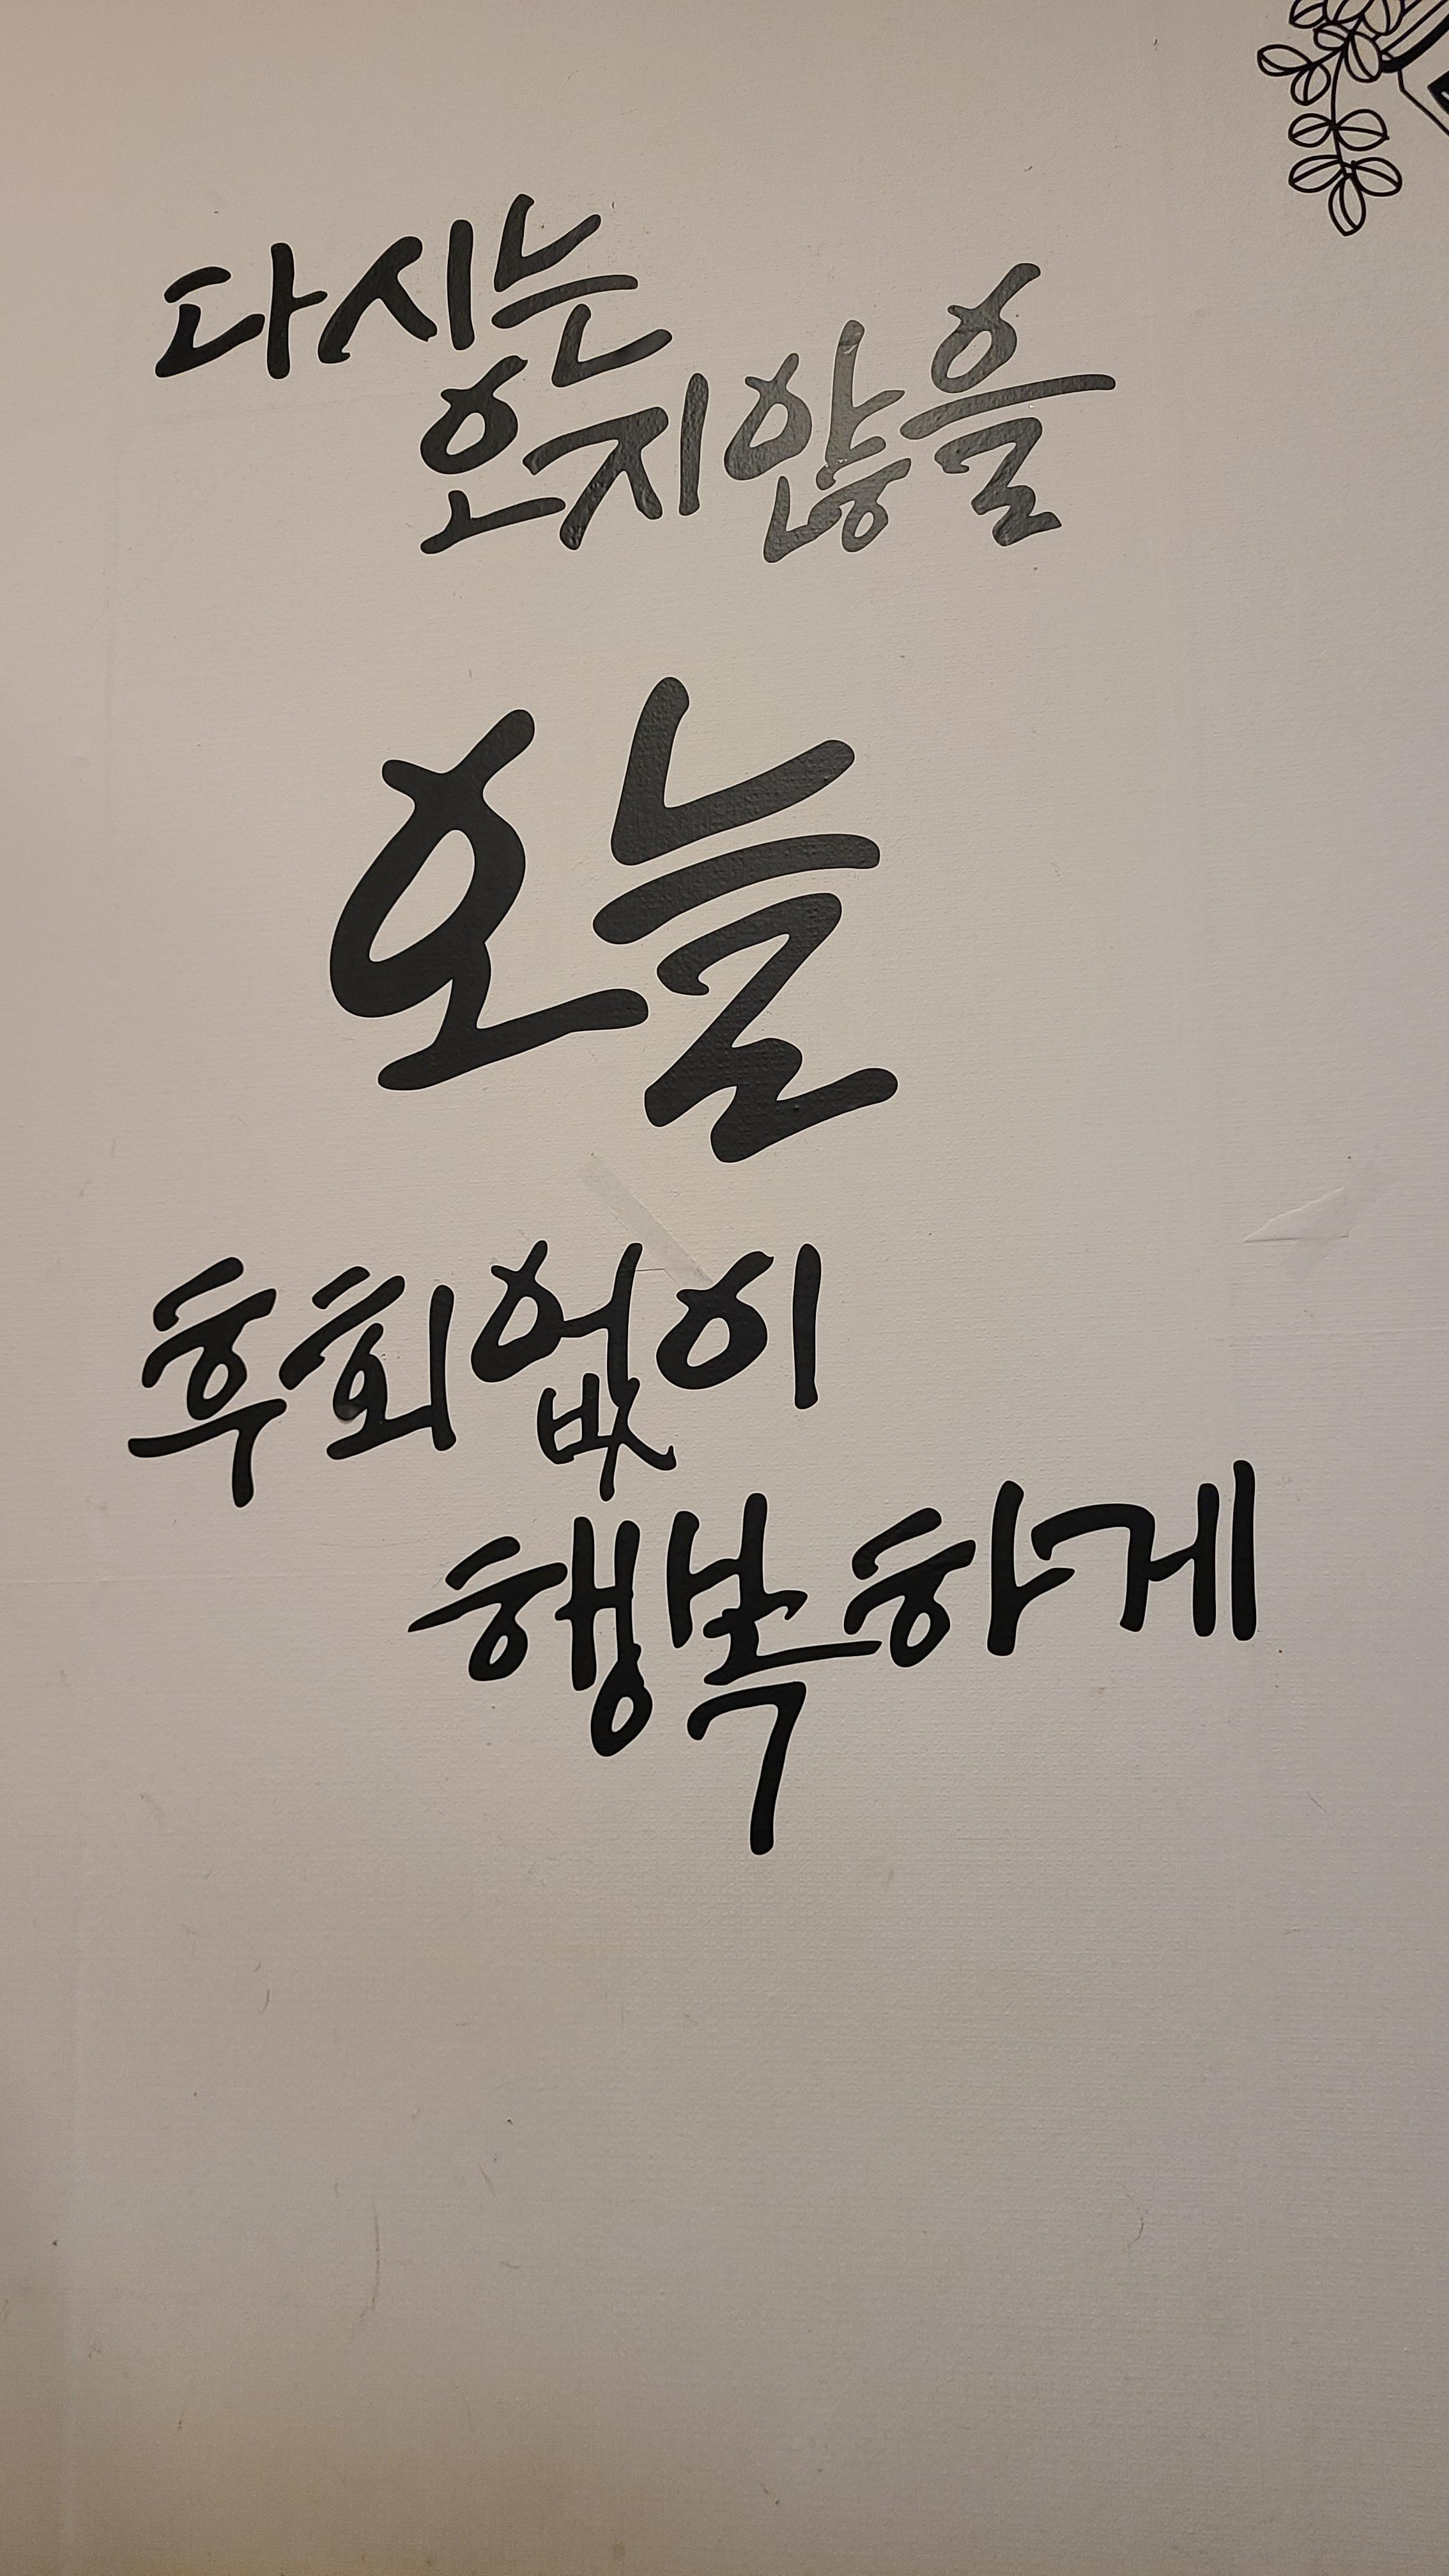 다시는
오지않을
오늘
후회없이
행복하게